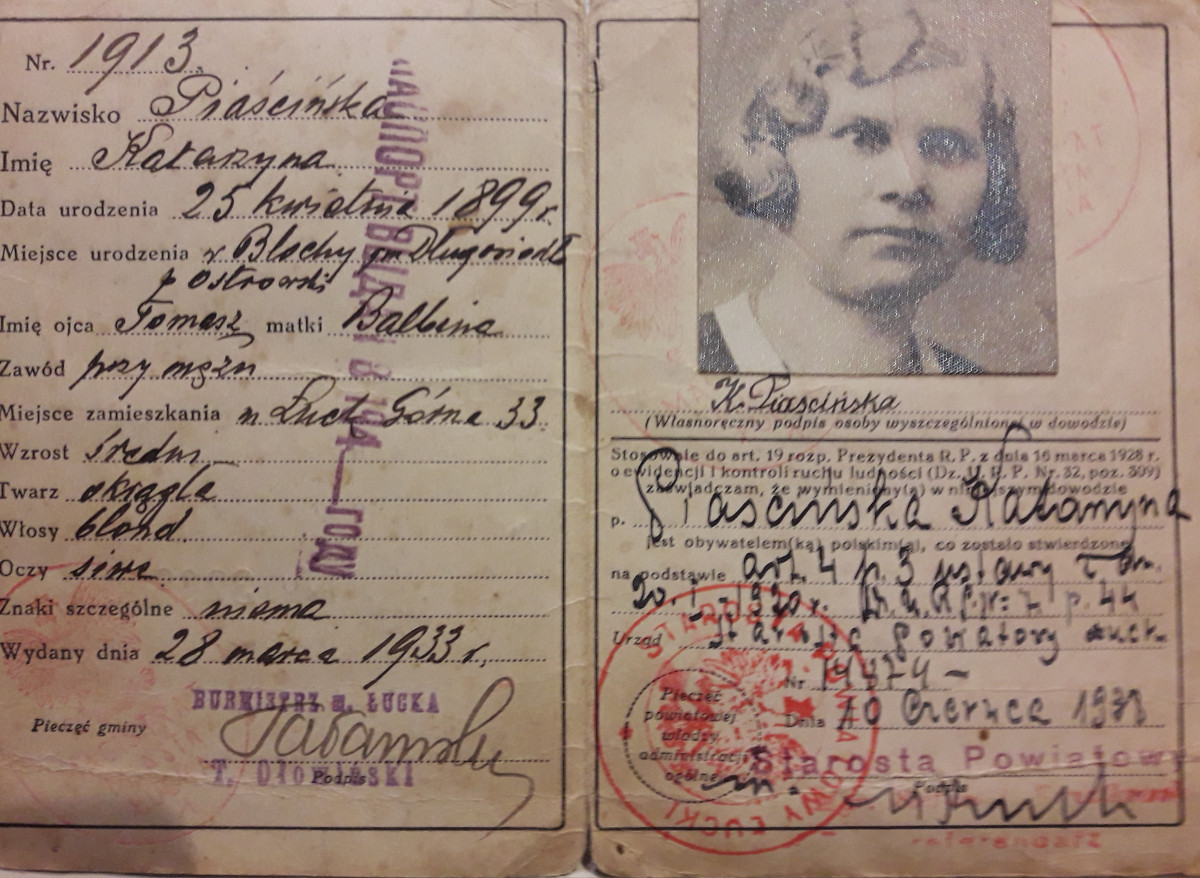 Nr. 1913.
Nazwisko Piaścińska
Imię Katarzyna
Data urodzenia 25 kwietnia 1899 r.
Miejsce urodzenia w Blochy gm Długosiodł
p Ostrowski
Imię ojca Tomasz matki Balbina
Zawód przy mężu
Miejsce zamieszkania m. Łuck Górna 33
Wzrost średni
Twarz okrągła
Włosy blond
Oczy siwe
Znaki szczególne niema
Wydany dnia 28 marca 1933 r.
BURMISTRZ m. ŁUCKA
Pieczęć gminy
Podpis
ПАСПОРТ ВЫДАН В 194 году
K. Piaścińska
(Własnoręczny podpis osoby wyszczególnionej w dowodzie)
Stosownie do art. 19 rozp. Prezydenta R. P. z dnia 16 marca 1928 r.
o ewidencji i kontroli ruchu ludności (Dz. U. R. P. Nr. 32, poz. 309)
zaświadczam, że wymieniony(a) w niniejszym dowodzie
p. Piaścińska Katarzyna
jest obywatelem(ką) polskim(ą), co zostało stwierdzone
na podstawie art. 4 p. 3 ustawy z dn.
20. I - 1920 r. Dz. U. R. P. Nr. 7 p. 44
Urząd Starostę Powiatowy Łuck
Nr
Dnia 10 Czerwca
Pieczęć
powiatowej
władzy
administracji
ogólnej
STAROSTA POWIATOWY ŁUCKI
Starosta Powiatowy
Podpis
referendarz